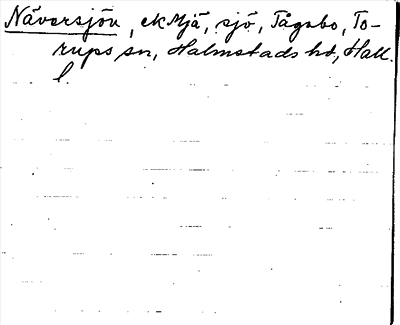 Näversjön, ek Mjä, sjö, Tågabo, To-
rups sn, Halmstads hd, Hall.
l.